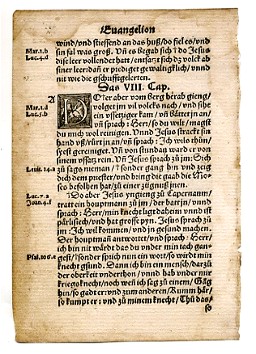 Euangelion
wind/ vnd stiessend an das huß/ do fiel es/ vnd
sin fal was groß. Vñ es begab sich/ do Jesus
dise leer vollendet hatt/ entsatzt sich dz volck ab
siner leer/ dañ er prediget gewaltigklich/ vnd
nit wie die gschrifftgelerten.
Das VIII. Cap.
Mar. 1. d
Luc. 5. c
A
DO er aber vom Berg herab gieng/
volget jm vil volcks nach/ vnd sihe
ein vssetziger kam/ vñ bättet jn an/
vñ sprach: Herr/ so du wilt/ magst
du mich wol reinigen. Vnnd Jesus streckt sin
hand vß/ rürt jn an/ vñ sprach: Ich wils thůn/
sygest gereiniget. Vnd von stundan ward er vō
sinem vßsatz rein. Vñ Jesus sprach zů jm: Sich
Leuit. 14. a
zů/ sags nieman/ sonder gang hin vnd zeig
dich dem priester/ vnd bring die gaab die Mo-
ses befolhen hat/ zů einer zügnuß jnen.
Luc. 7. a
Joan. 4. f
Do aber Jesus yngieng zů Capernaum/
tratt ein houptmann zů jm/ der batt jn/ vnnd
sprach: Herr/ min knecht ligt daheim vnnd ist
sprach zů
jm: Ich wil kommen/ vnd jn gesund machen.
Der houptmañ antwortet/ vnd sprach: Herr/
ich bin nit wärdt das du vnder min tach gan-
Psal. 106. c
gest/ sonder sprich nun ein wort/ so würt min
knecht gsund. Dann ich bin ein mensch/ darzů
der oberkeit vnderthon/ vnnd hab vnder mir
kriegsknecht/ noch wenn ich sag zů einem/ Gang
hin/ so gadt er: vnd zum anderen/ Kumm här/
so kumpt er: vnd zů minem knecht/ Thů das/
so